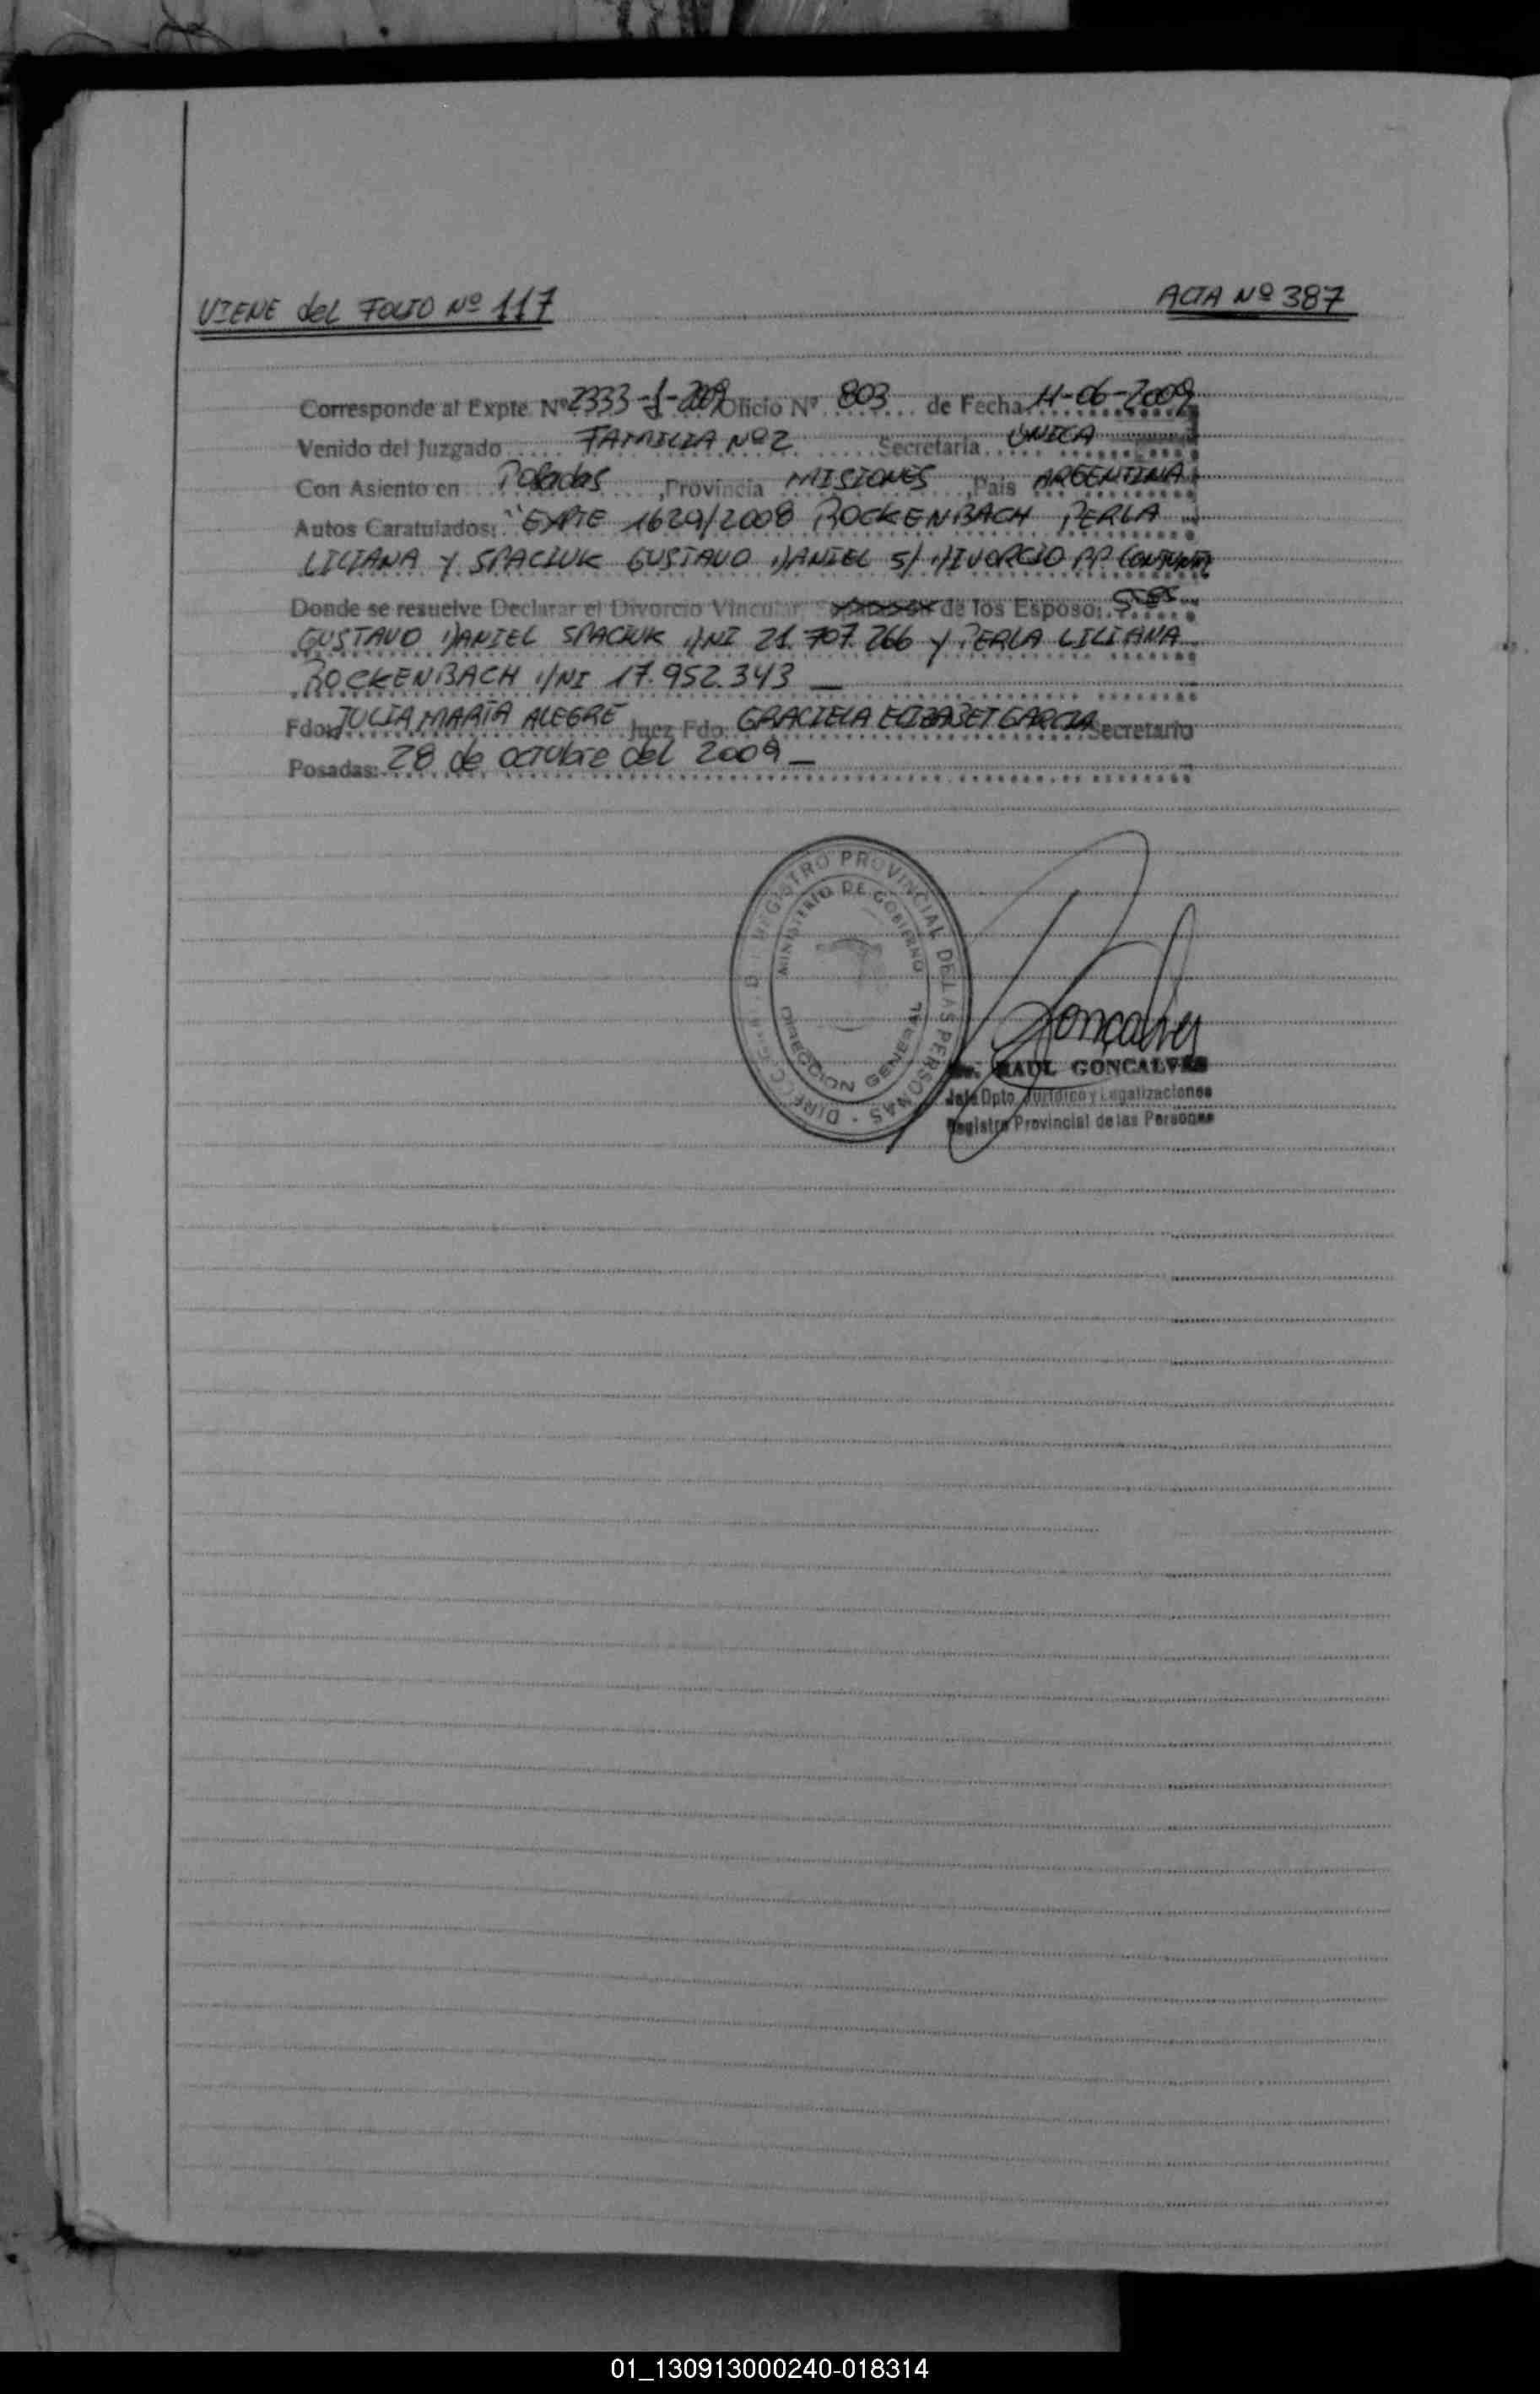 VIENE del FOLIO Nº 117
ACTA Nº 387
Corresponde al Expte. Nº 2333-J-2009 Oficio Nº 803 de Fecha 11-06-2009
Venido del Juzgado FAMILIA Nº 2 Secretaria UNICA
Con Asiento en Posadas, Provincia MISIONES, Pais ARGENTINA
Autos Caratulados: "EXPTE 1629/2008 ROCKENBACH PERLA
LILIANA Y SPACIUK GUSTAVO DANIEL S/ DIVORCIO PP. CONJUNTA
Donde se resuelve Declarar el Divorcio Vincular de los Esposo: SRES
GUSTAVO DANIEL SPACIUK DNI 21.707.266 y PERLA LILIANA
ROCKENBACH DNI 17.952.343
Fdo. JULIA MARIA ALEGRE Juez Fdo. GRACIELA ELIZABET GARCIA Secretario
Posadas: 28 de octubre del 2009
REGISTRO PROVINCIAL DE LAS PERSONAS
MINISTERIO DE GOBIERNO
DIRECCION GENERAL
Goncalves
Dr. RAUL GONCALVES
Jefe Dpto. Jurídico y Legalizaciones
Registro Provincial de las Personas
01_130913000240-018314